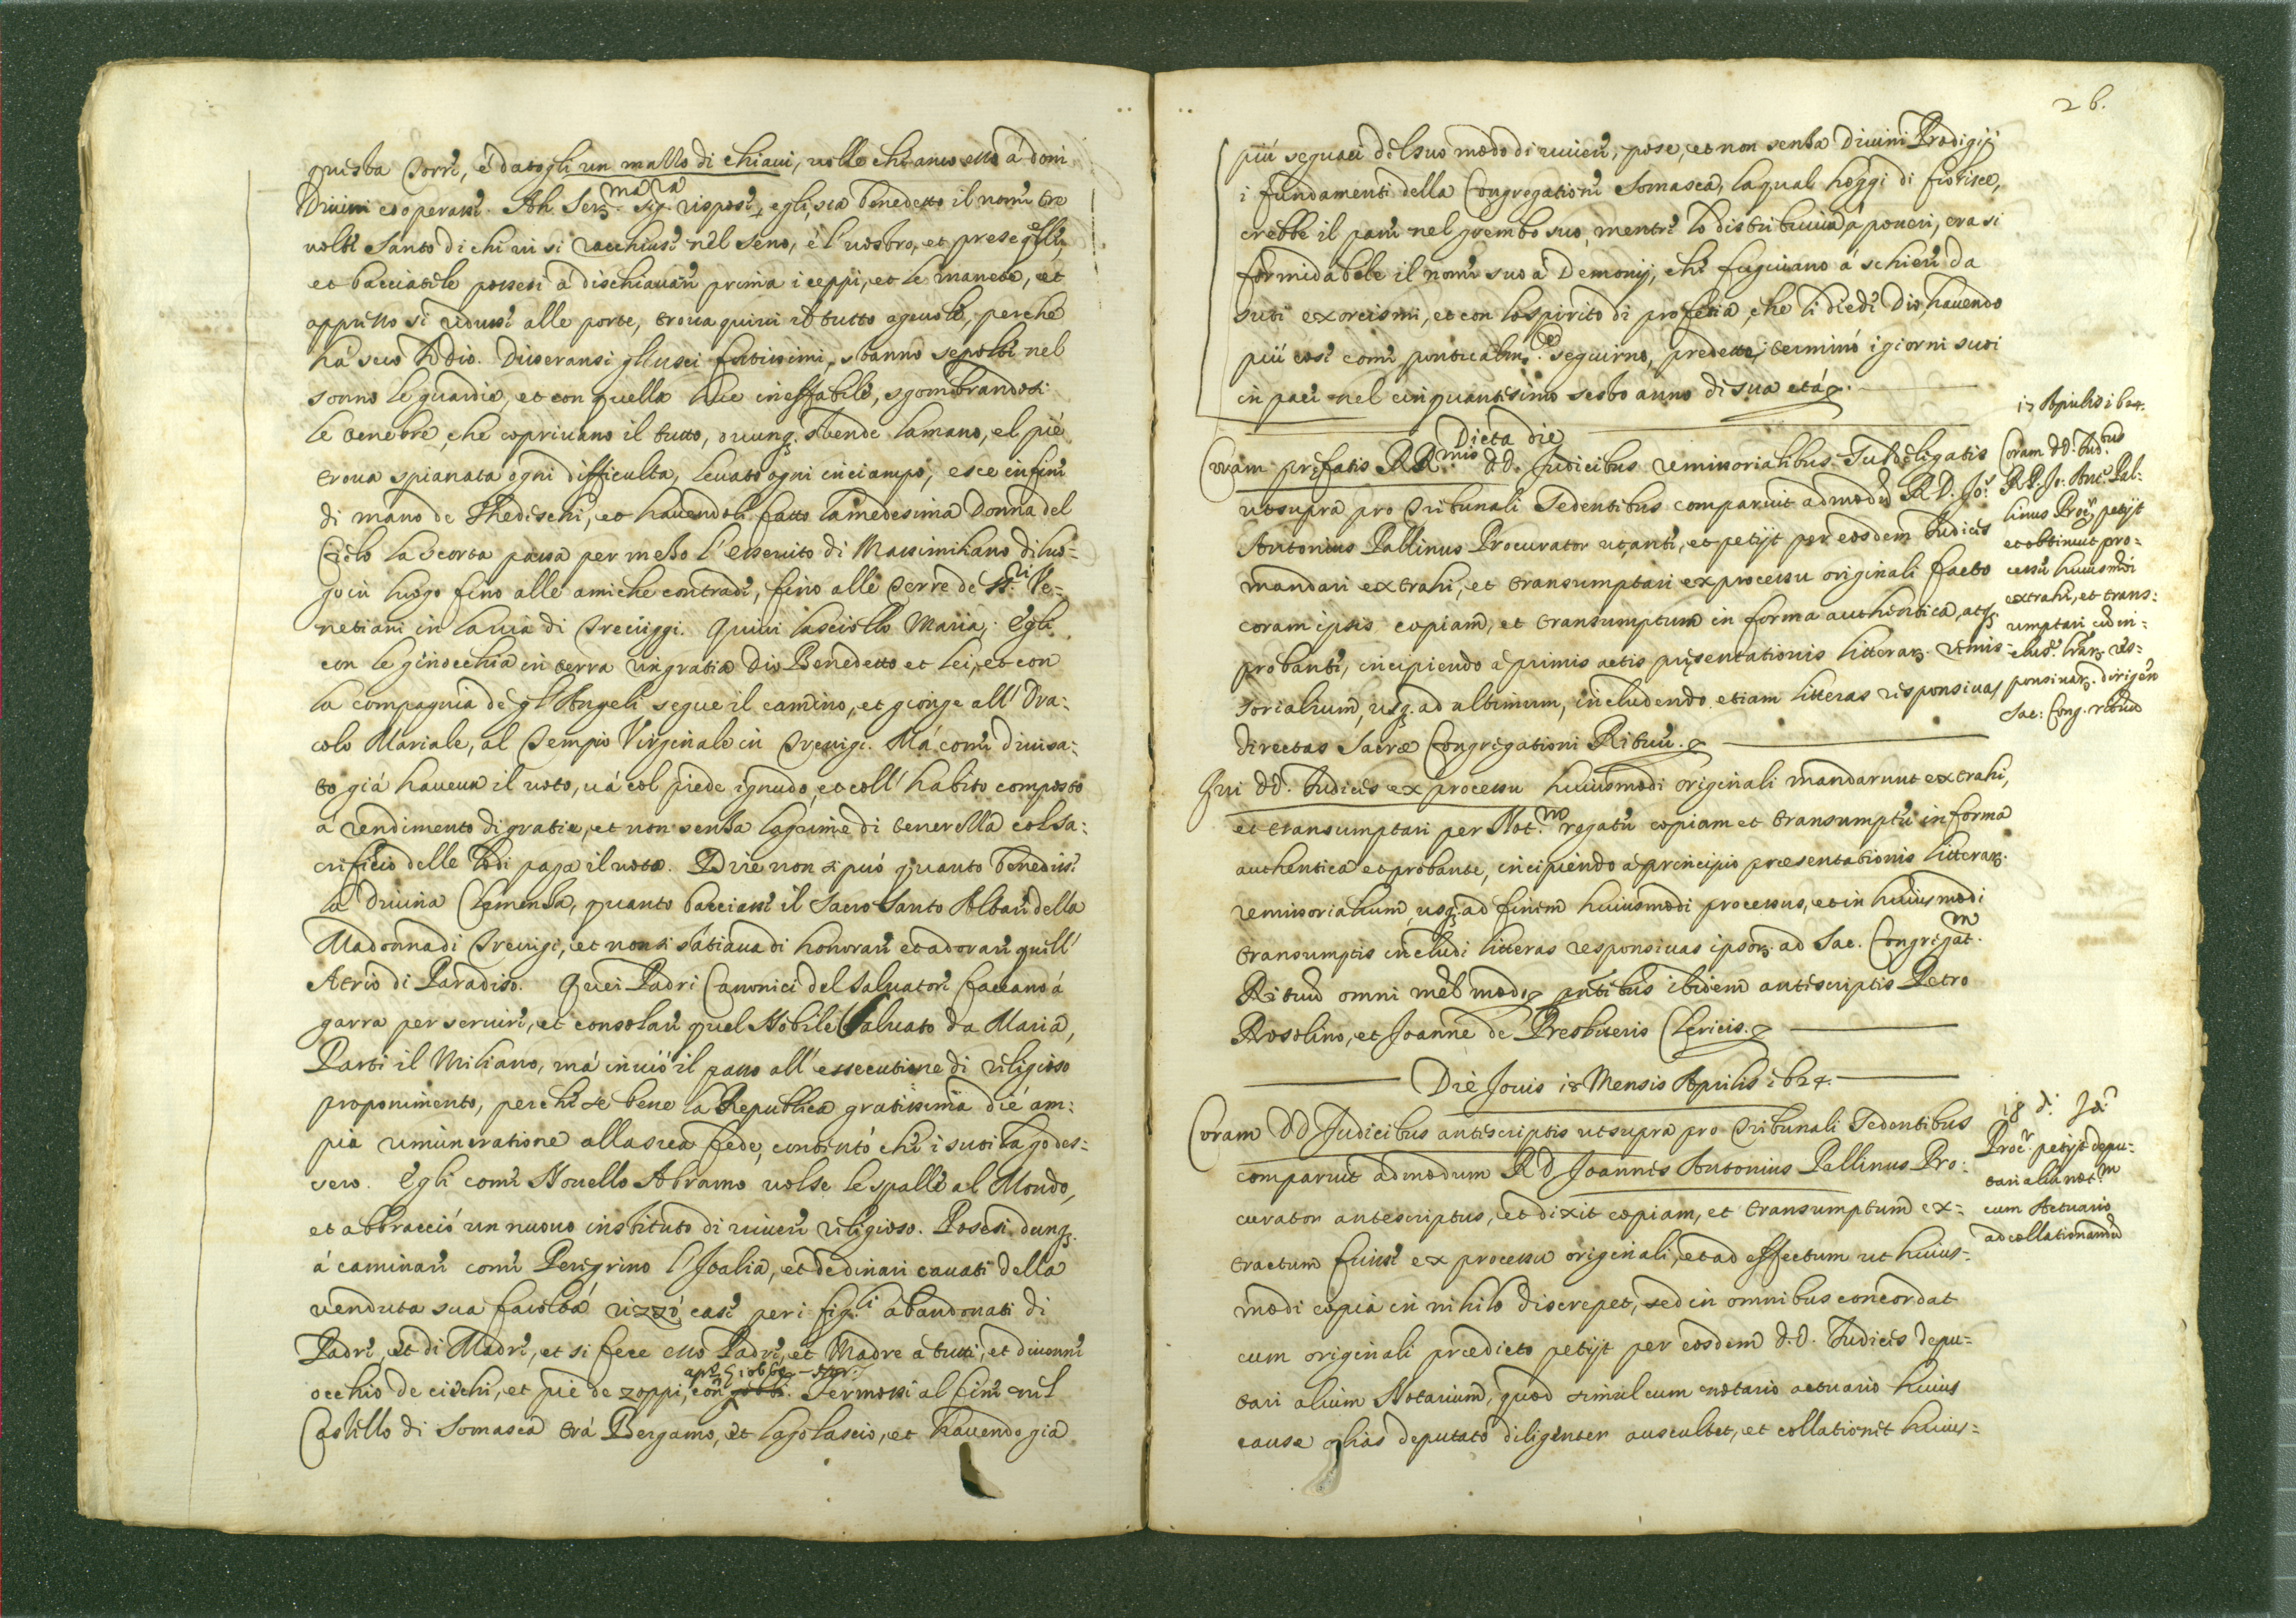 questa Torre, e datogli un mazzo di chiaui, uolle che anco esso á doni
Diuini cooperasse. Ah Ser.ma Sig.ra rispose egli, sia benedetto il nome tre
uolte Santo di chi ui si racchiuse nel seno, e l'uostro, et prese quelle
et bacciatele possesi a dischiauare prima i ceppi, et le manete, et
appresso si ridusse alle porte, troua quiui il tutto ageuole, perche
ha seco Iddio. Diserransi gl'usci fortissimi, stanno sepolti nel
sonno le guardie, et con quella luce ineffabile, sgombrandosi
le tenebre, che copriuano il tutto, ouunq. stende la mano, el pié
troua spianata ogni difficulta, leuato ogni inciampo, esce infine
di mano de Thedeschi, et hauendoli fatto la medesima Donna del
Cielo la scorta passa per mezo l'essercito di Massimiliano di luo=
go in luogo fino alle amiche contrade, fino alle Terre de SS.ri Ve=
netiani in la uia di Treuiggi. Quiui lasciollo Maria, Egli
con le ginocchia in terra ringratia Dio Benedetto et lei, et con
la compagnia de gl'Angeli segue il camino, et gionge all' Ora=
colo Mariale, al Tempio Virginale in Treuigi. Má come diuisa=
to giá haueua il uoto, uá col piede ignudo, et coll' habito composto
á rendimento di gratie, et non senza lagrime di tenerezza col sa=
crificio delle lodi paga il uoto. Dire non si puó quanto benedisse
la Diuina Clemenza, quanto bacciasse il Sacro Santo Altare della
Madonna di Treuigi, et non si satiaua di honorare et adorare quell'
Atrio di Paradiso. Quei Padri Canonici del Saluatore faceano á
garra per seruire, et consolare quel Nobile saluato da Maria,
Parti il Miliano, má inuió il passo all' essecutione di religioso
proponimento, perche se bene la Republica gratissima dié am=
pia remuneratione alla sua fede, contentó che i suoi la godes=
sero. Egli come Nouello Abramo uolse le spalle al Mondo,
et abbracció un nuouo instituto di uiuere religioso. Posesi dunq.
á caminare come Peregrino l'Italia, et de dinari cauati della
venduta sua facoltá rizzó case per i fig.li abandonati di
Padre, et di Madre, et si fece esso Padre, et Madre a tutti, et diuenne
occhio de ciechi, et pié de zoppi, con Giobbe. Fermossi al fine nel
Castello di Somasca trá Bergamo, et lago lascio, et hauendo gia
26.
piú seguaci del suo modo di uiuere, pose, et non senza Diuini Prodigij
i fundamenti della Congregatione Somasca, la qual hoggi di fiorisce,
crebbe il pane nel grembo suo, mentre lo distribuiua á poueri, era si
formidabile il nome suo á Demonij, che fuguiano á schiere da
suoi exorcismi, et con lo spirito di profetia, che li diede Dio, hauendo
piú cose come pontualm.te seguirno, predette, terminó i giorni suoi
in pace nel cinquantesimo sesto anno di sua etá.
Dicta die
Coram prefatis RR.mis DD. Judicibus remissorialibus Subdelegatis
ut supra pro Tribunali Sedentibus comparuit admodu R. D. Jo:
Antonius Pallinus Procurator ut ante, et petijt per eosdem Judices
mandari extrahi, et transumptari ex processu originali facto
coram ipsis copiam, et transumptum in forma authentica, atq.
probante, incipiendo á primis actis presentationis litterar. remis=
sorialium, usq. ad ultimum, includendo etiam litteras responsiuas
directas Sacrae Congregationi Rituu.
Qui DD. Judices ex processu huiusmodi originali mandarunt extrahi,
et transumptari per Not.m rogatu copiam et transumptu in forma
authentica et probante, incipiendo á principio praesentationis litterar.
remissorialium, usq. ad finem huiusmodi processus, et in huiusmodi
transumptis includi litteras responsiuas ipsor. ad Sac. Congregat.m
Rituu omni meli modo, pntibus ibidem antescriptis Petro
Rosolino, et Joanne de Presbiteris Clericis.
17 Aprilis 1624.
Coram DD. Jud.bus
R. D. Jo: Ant. Pal=
linus Proc.r petijt
et obtinuit pro=
cessu huiusmodi
extrahi, et trans=
umptari cu in=
clus. lrar. res=
ponsiuar. dirigen
Sac: Cong. rituu
Die Jouis 18 Mensis Aprilis 1624.
Coram DD Judicibus antescriptis ut supra pro Tribunali Sedentibus
comparuit admodum R D Joannes Antonius Pallinus Pro=
curator antescriptus, et dixit copiam, et transumptum ex=
tractum fuisse ex processu originali, et ad effectum ut huius=
modi copia in nihilo discrepet, sed in omnibus concordat
cum originali praedicto petijt per eosdem D.D. Judices depu=
tari alium Notarium, quod simul cum notario actuario huius
cause alias deputato diligenter auscultet, et collationet huius=
18 d. Id.
Proc.r petijt depu=
tari aliu not.m
cum Actuario
ad collationandu